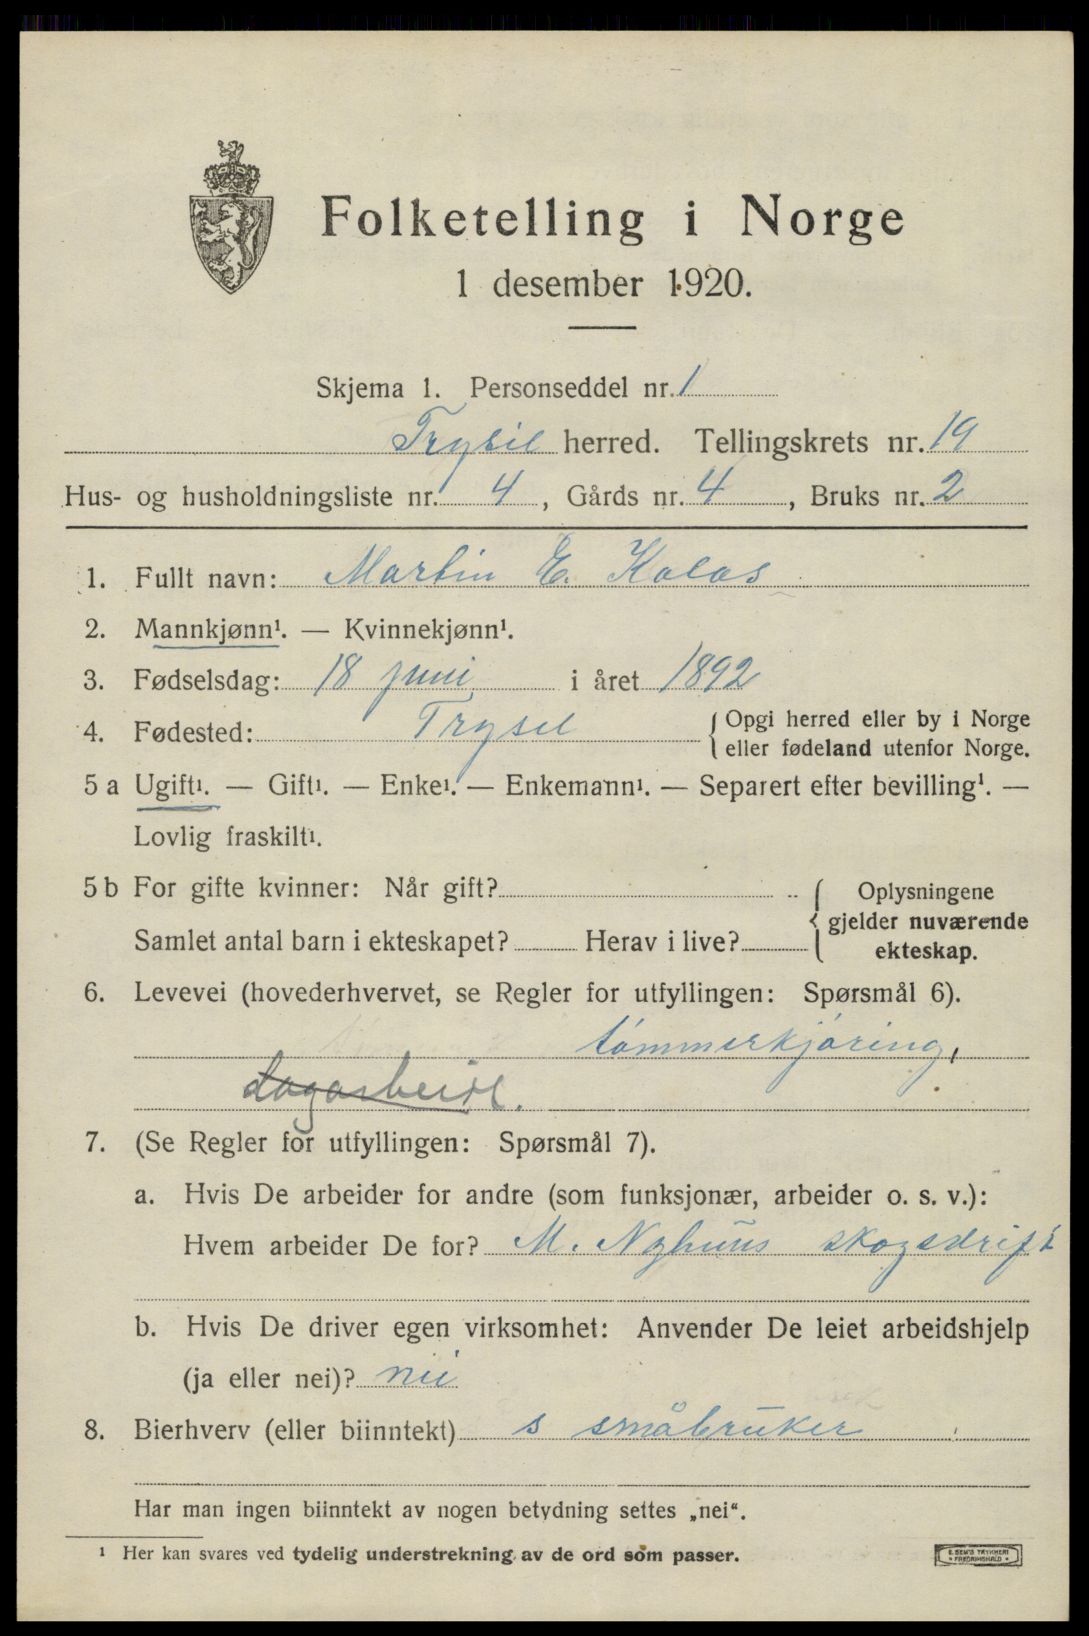 Folketelling i Norge
1 desember 1920.
Skjema 1. Personseddel nr. 1
Trysil herred. Tellingskrets nr. 19
Hus- og husholdningsliste nr. 4, Gårds nr. 4, Bruks nr. 2
1. Fullt navn: Martin E. Kolos
2. Mannkjønn¹. — Kvinnekjønn¹.
3. Fødselsdag: 18 juni i året 1892
4. Fødested: Trysil { Opgi herred eller by i Norge
eller fødeland utenfor Norge.
5 a Ugift¹. — Gift¹. — Enke¹. — Enkemann¹. — Separert efter bevilling¹. —
Lovlig fraskilt¹.
5 b For gifte kvinner: Når gift? { Oplysningene
gjelder nuværende
Samlet antal barn i ekteskapet? Herav i live? ekteskap.
6. Levevei (hovederhvervet, se Regler for utfyllingen: Spørsmål 6).
tømmerkjøring,
7. (Se Regler for utfyllingen: Spørsmål 7).
a. Hvis De arbeider for andre (som funksjonær, arbeider o. s. v.):
Hvem arbeider De for? M. Nyhuus skogsdrift
b. Hvis De driver egen virksomhet: Anvender De leiet arbeidshjelp
(ja eller nei)? nei
8. Bierhverv (eller biinntekt) s småbruker
Har man ingen biinntekt av nogen betydning settes „nei“.
¹ Her kan svares ved tydelig understrekning av de ord som passer.
E. SEM'S TRYKKERI
FREDRIKSHALD